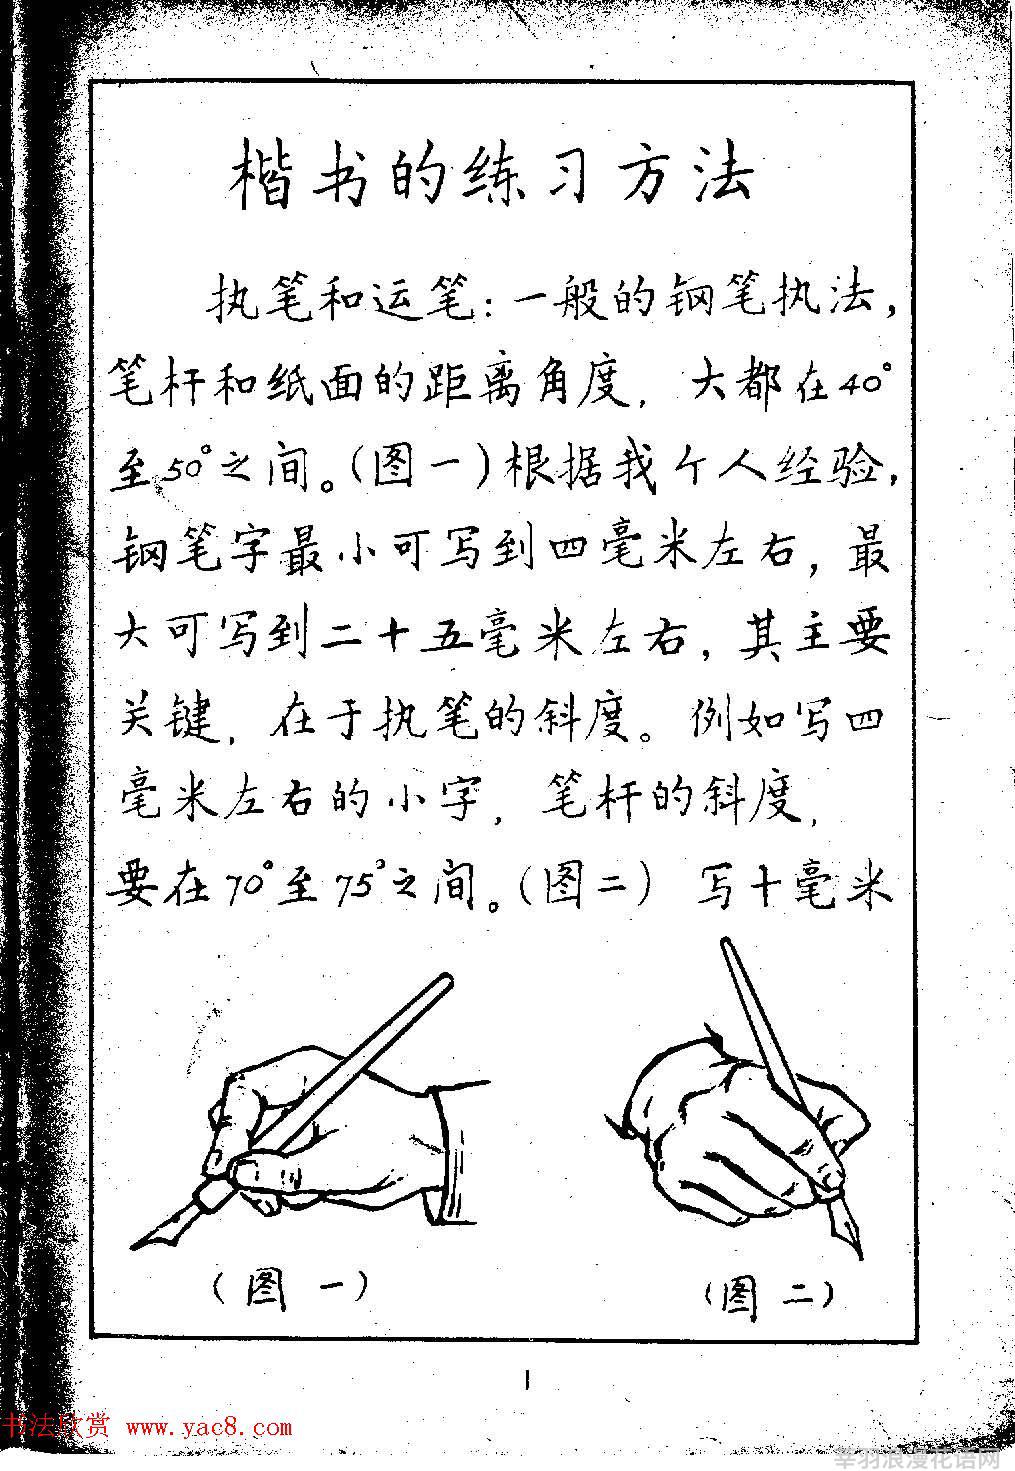 楷书的练习方法
执笔和运笔：一般的钢笔执法，
笔杆和纸面的距离角度，大都在40°
至50°之间。（图一）根据我个人经验，
钢笔字最小可写到四毫米左右，最
大可写到二十五毫米左右，其主要
关键，在于执笔的斜度。例如写四
毫米左右的小字，笔杆的斜度，
要在70°至75°之间。（图二）写十毫米
（图一）
（图二）
1
书法欣赏 www.yac8.com
莘羽浪漫花语网